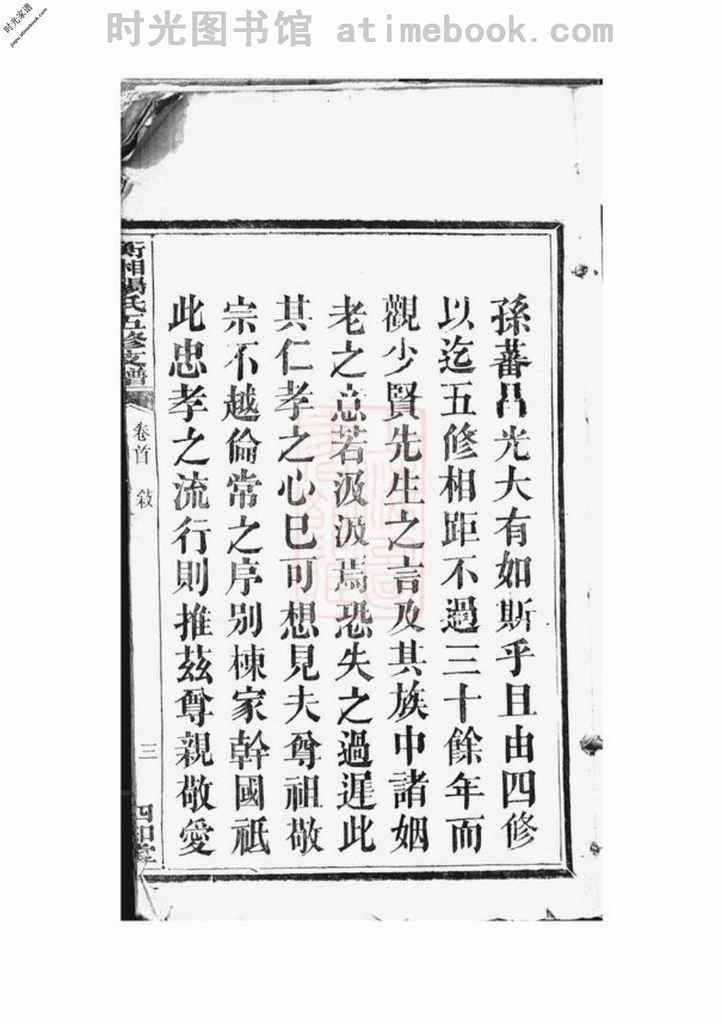 时光图书馆 atimebook.com
时光家谱
jiapu.atimebook.com
孫蕃昌光大有如斯乎且由四修
以迄五修相距不過三十餘年而
觀少賢先生之言及其族中諸姻
老之意若汲汲焉恐失之過遲此
其仁孝之心已可想見夫尊祖敬
宗不越倫常之序別棟家幹國祇
此忠孝之流行則推茲尊親敬愛
衡湘楊氏五修支譜
卷首 敍
三
四知堂